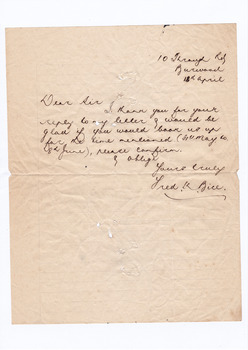 10 Through Rd
Burwood
18th April
Dear Sir
I thank you for your
reply to my letter & would be
glad if you would book us up
for the time mentioned (31st May to
8th June), please confirm.
& Oblige
Yours truly
Fred